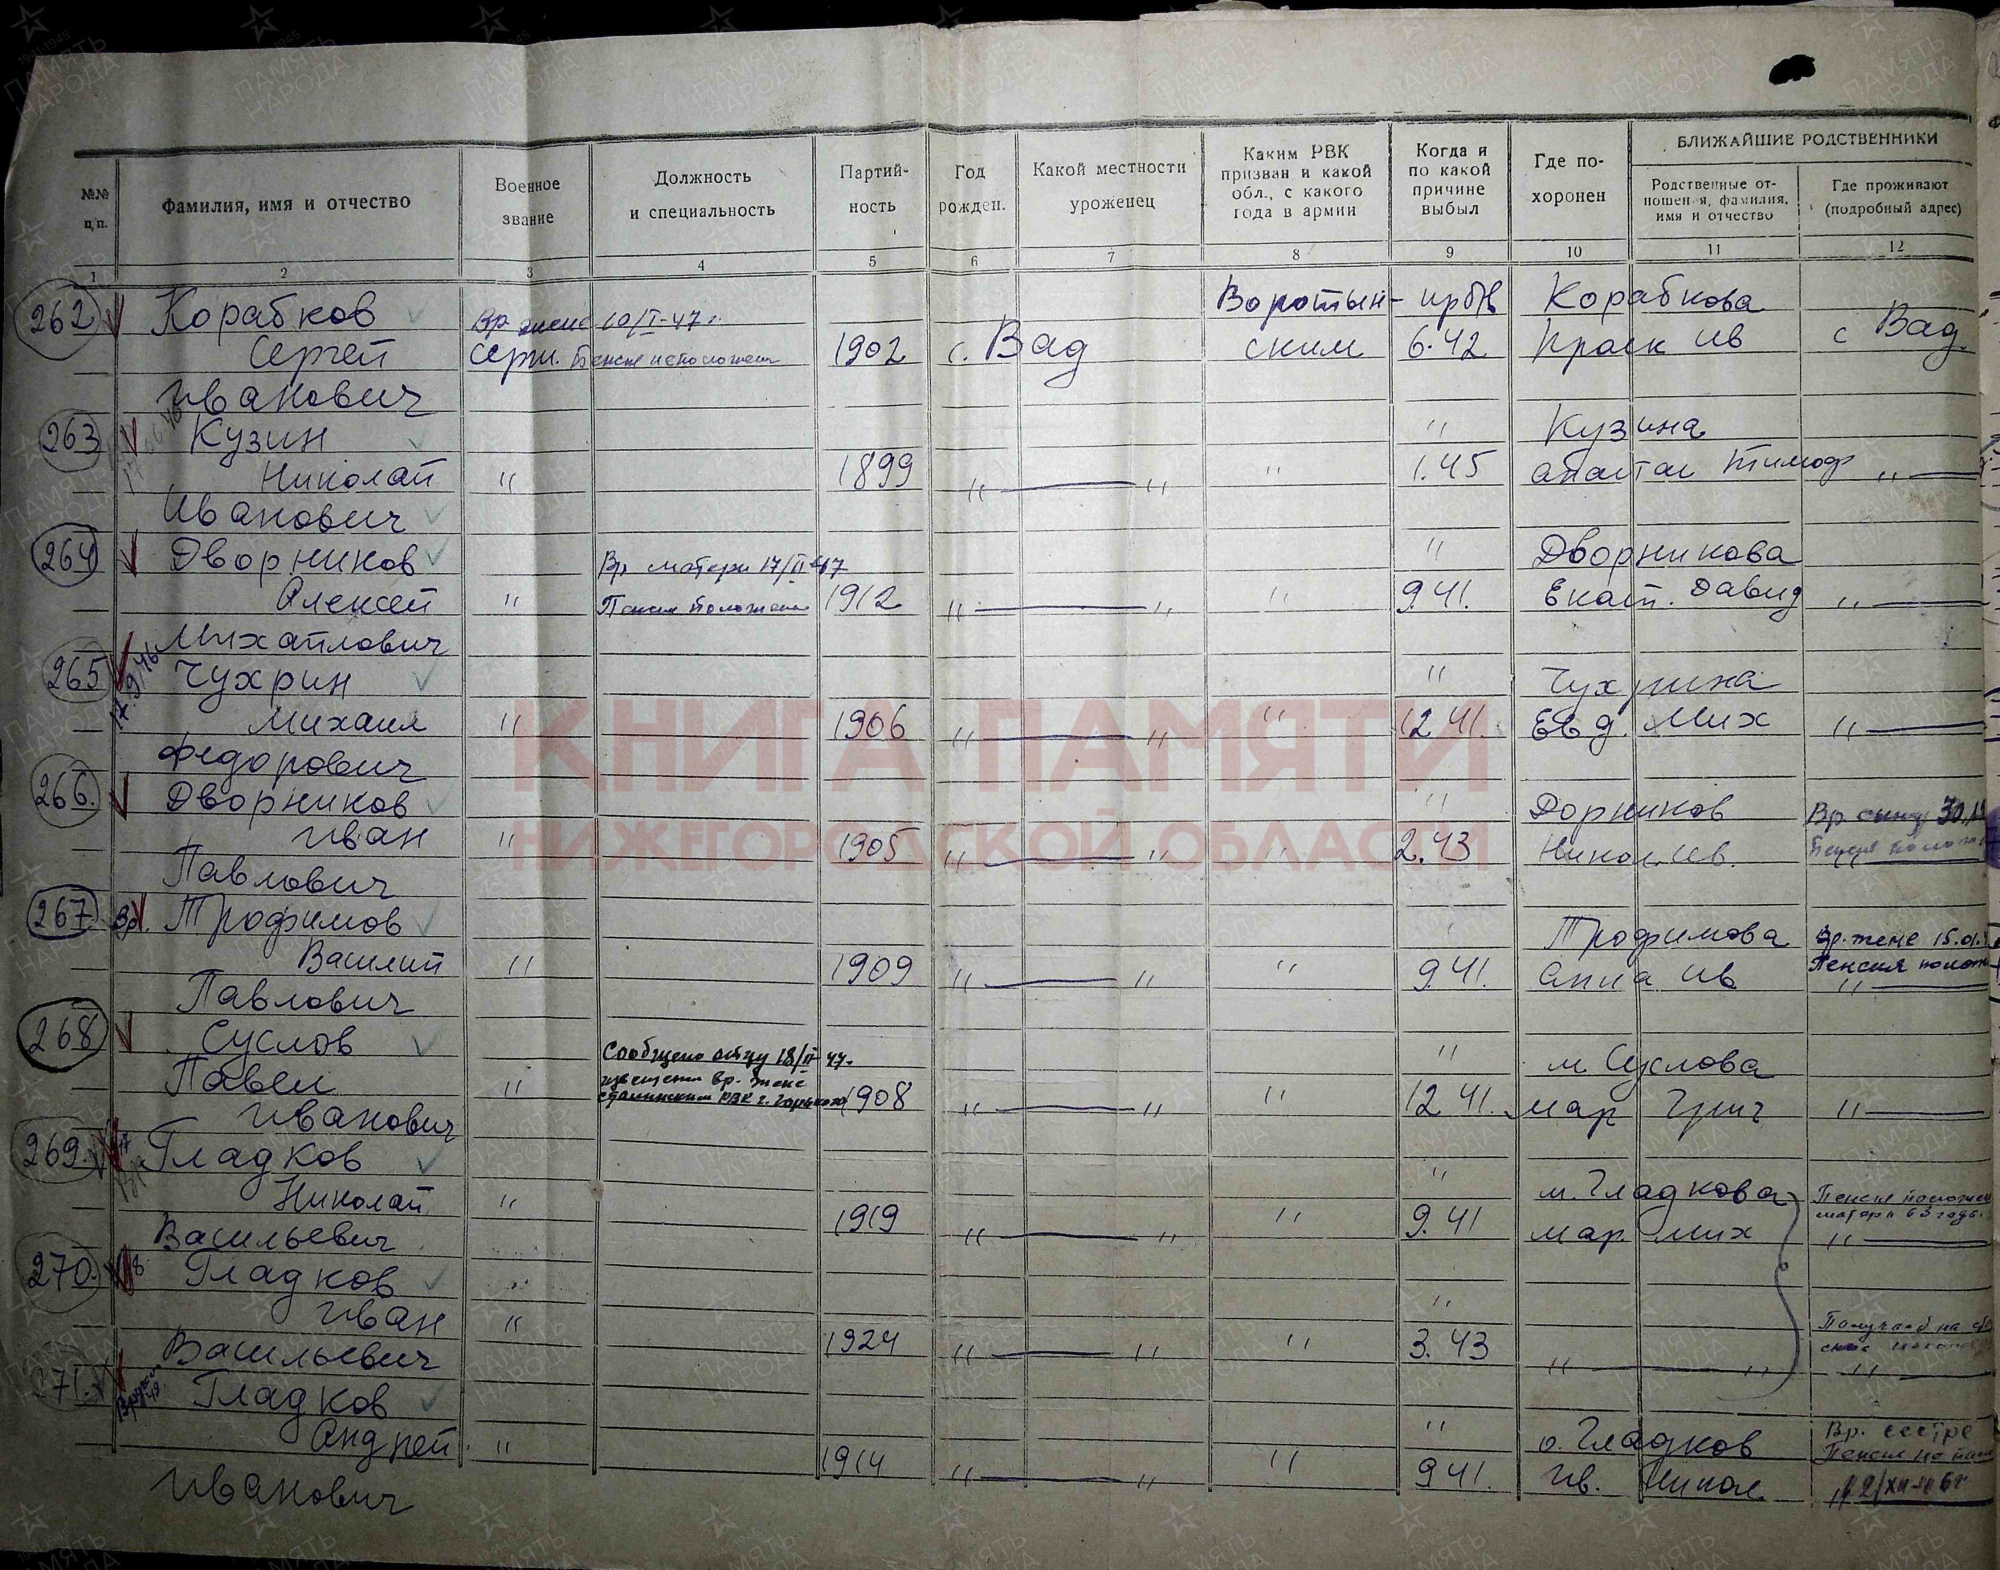 БЛИЖАЙШИЕ РОДСТВЕННИКИ
№№ п/п.
Фамилия, имя и отчество
Военное звание
Должность и специальность
Партий-
ность
Год рожден.
Какой местности
уроженец
Каким РВК
призван и какой
обл., с какого
года в армии
Когда и
по какой
причине
выбыл
Где по-
хоронен
Родственные от-
ношения, фамилия,
имя и отчество
Где проживают
(подробный адрес)
1 2 3 4 5 6 7 8 9 10 11 12
262 Корабков Вр жене 10/I-47г. Воротын- Корабкова
Сергей серж. 1902 с. Вад ским 6.42 Ив с Вад.
Иванович
263 Кузин " Кузина
Николай " 1899 " — " " 1.45 Тимоф " —
Иванович
264 Дворников Вр матери 17/II-47 " Дворникова
Алексей " Пенсия положена 1912 " — " " 9.41. Екат. Давид " —
Михайлович
265 17.9/46 Чухрин " Чухрина
Михаил " 1906 " — " " 12 41. Евд. Мих " —
Федорович
266. Дворников " Дорников Вр сыну 30.
Иван " 1905 " — " " 2.43 Никол. Ив.
Павлович
267. Вр. Трофимов " Трофимова Вр. жене 15.01.
Василий " 1909 " — " " 9.41. Анна Ив Пенсия полож
Павлович " —
268 Суслов Сообщено отцу 18/II-47. " м Суслова
Павел " извещени вр. жене
сталинским РВК г. Горького 1908 " — " " 12 41. мар Григ " —
Иванович
269. Гладков " м. Гладкова Пенсия положен
Николай " 1919 " — " " 9.41 мар. Мих матери 63 года.
Васильевич " —
270. Гладков "
Иван " 1924 " — " " 3.43 " — "
Васильевич " —
271. Гладков " о. Гладков Вр. сестре
Андрей " 1914 " — " " 9 41. Ив. Никол Пенсия не
Иванович
КНИГА ПАМЯТИ
НИЖЕГОРОДСКОЙ ОБЛАСТИ
ПАМЯТЬ
НАРОДА